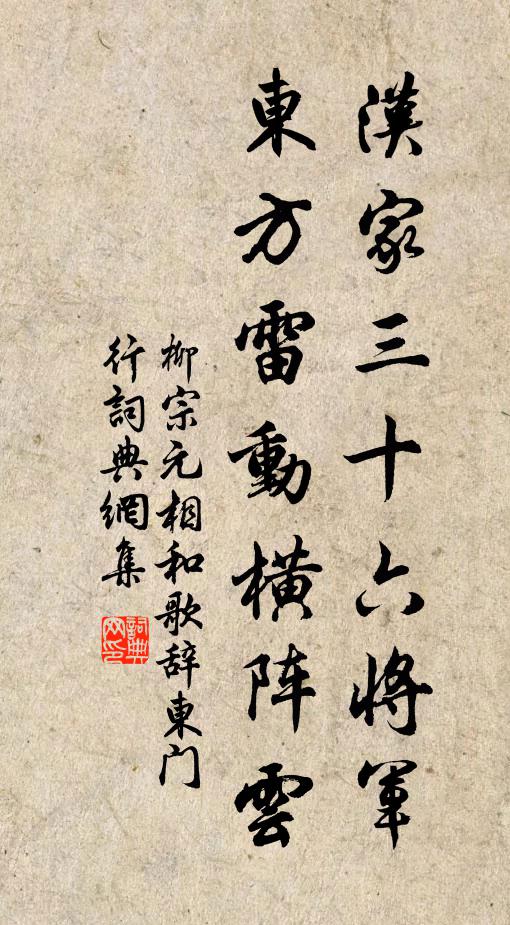 漢家三十六將軍
東方雷動橫阵雲
柳宗元相和歌辞東门
行詞典網集
詞典
网印